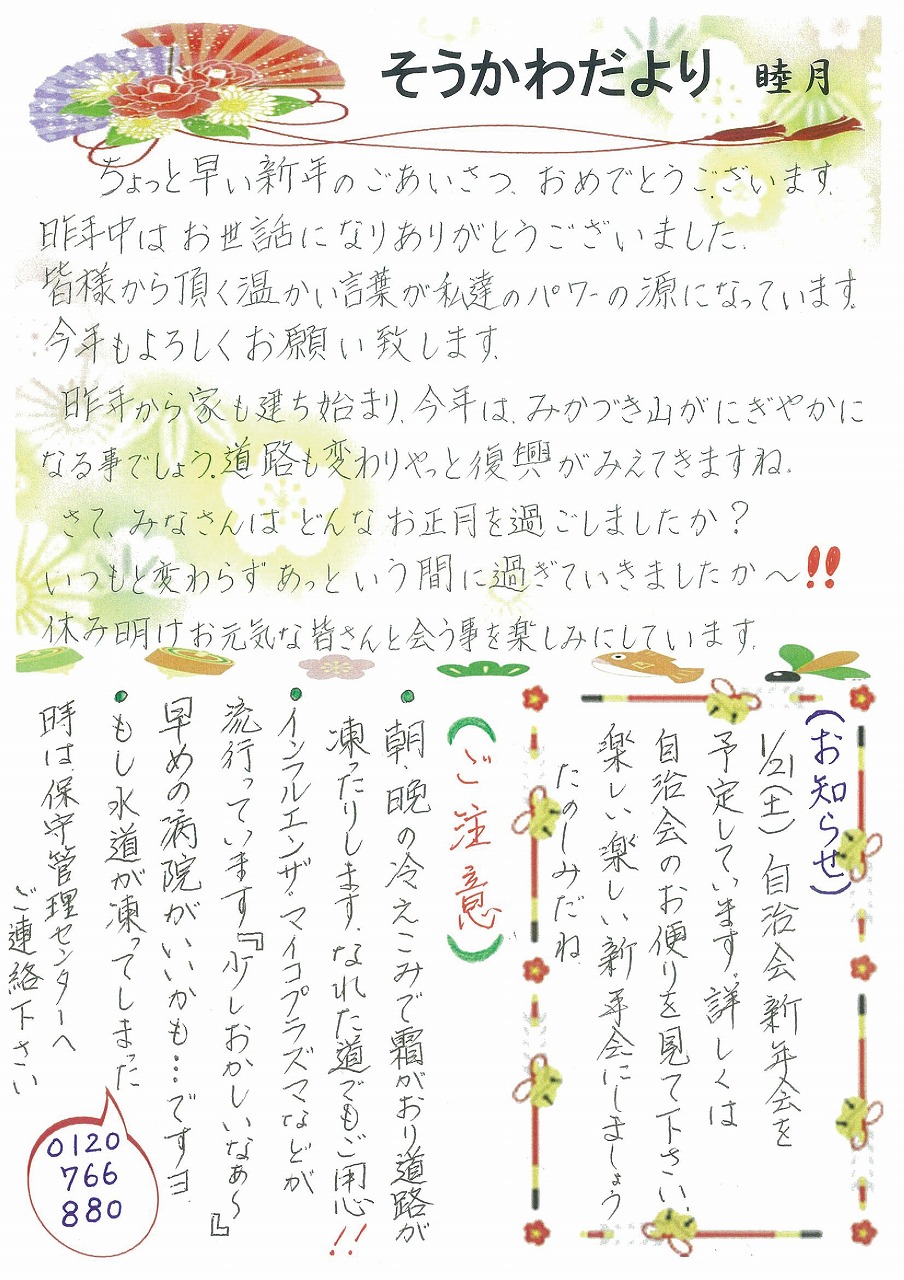 そうかわだより 睦月
ちょっと早い新年のごあいさつ、おめでとうございます。
昨年中はお世話になりありがとうございました。
皆様から頂く温かい言葉が私達のパワーの源になっています。
今年もよろしくお願い致します。
昨年から家も建ち始まり、今年は、みかづき山がにぎやかに
なる事でしょう。道路も変わりやっと復興がみえてきますね。
さて、みなさんはどんなお正月を過ごしましたか？
いつもと変わらずあっという間に過ぎていきましたか〜!!
休み明けお元気な皆さんと会う事を楽しみにしています。
（お知らせ）
1/21（土）自治会新年会を
予定しています。詳しくは
自治会のお便りを見て下さい。
楽しい楽しい新年会にしましょう
たのしみだね
（ご注意）
●朝・晩の冷えこみで霜がおり道路が
凍ったりします。なれた道でもご用心!!
●インフルエンザ・マイコプラズマなどが
流行っています『少しおかしいなぁ〜』
早めの病院がいいかも…ですヨ
●もし水道が凍ってしまった
時は保守管理センターへ
ご連絡下さい
0120
766
880